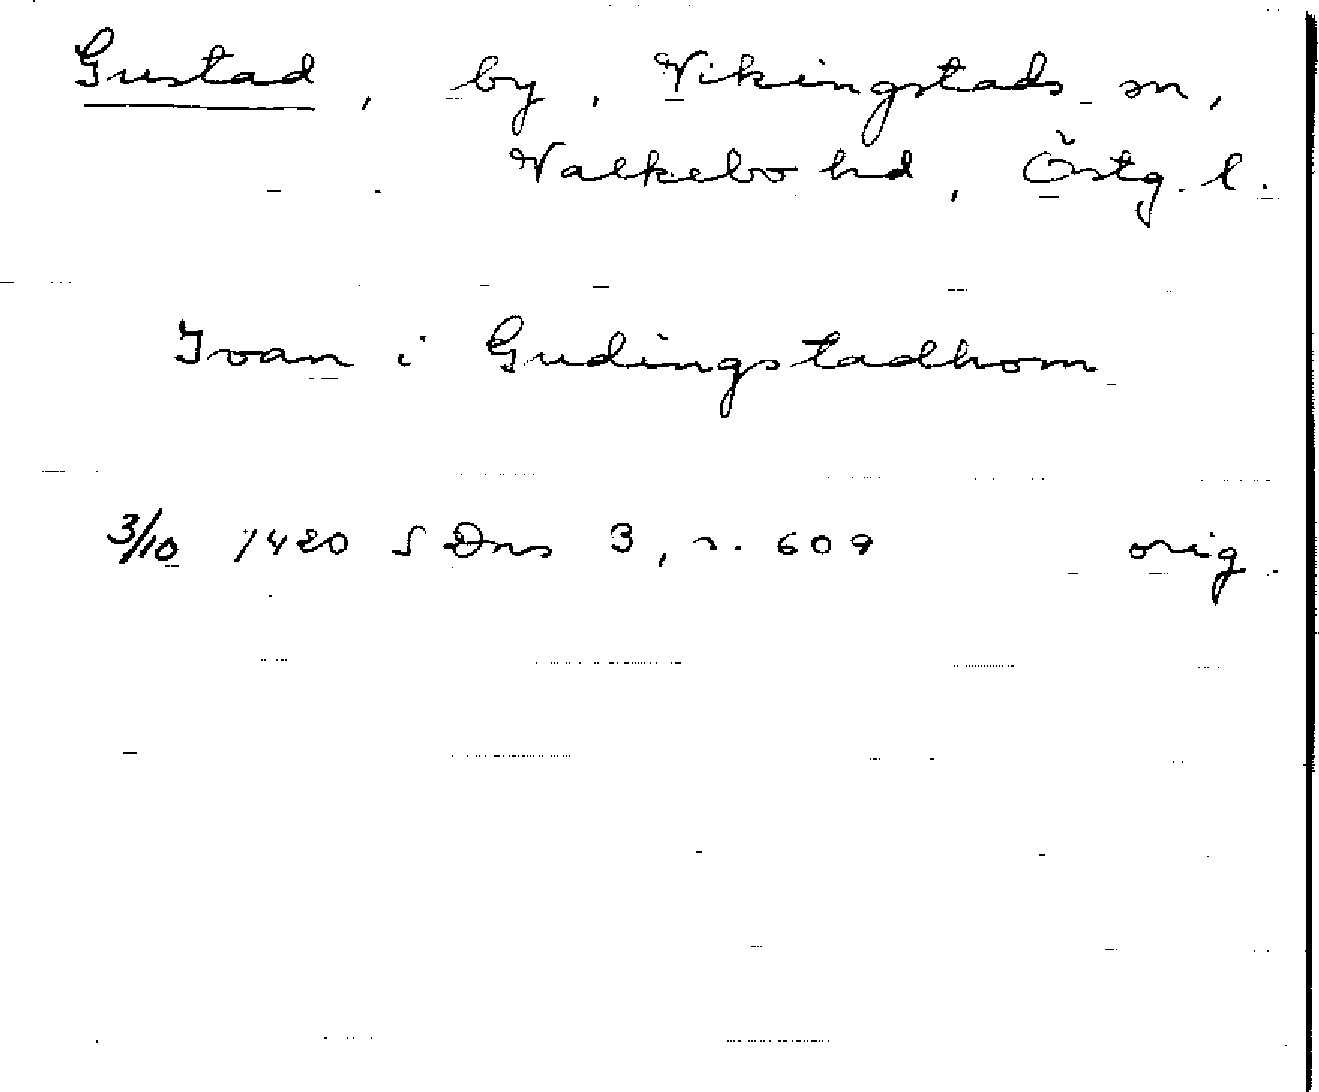 Gustad, by, Vikingstads sn,
Valkebo hd, Östg. l.
Ivan i Gudingstadhom
3/10 1420 SDns 3, s. 609 orig.